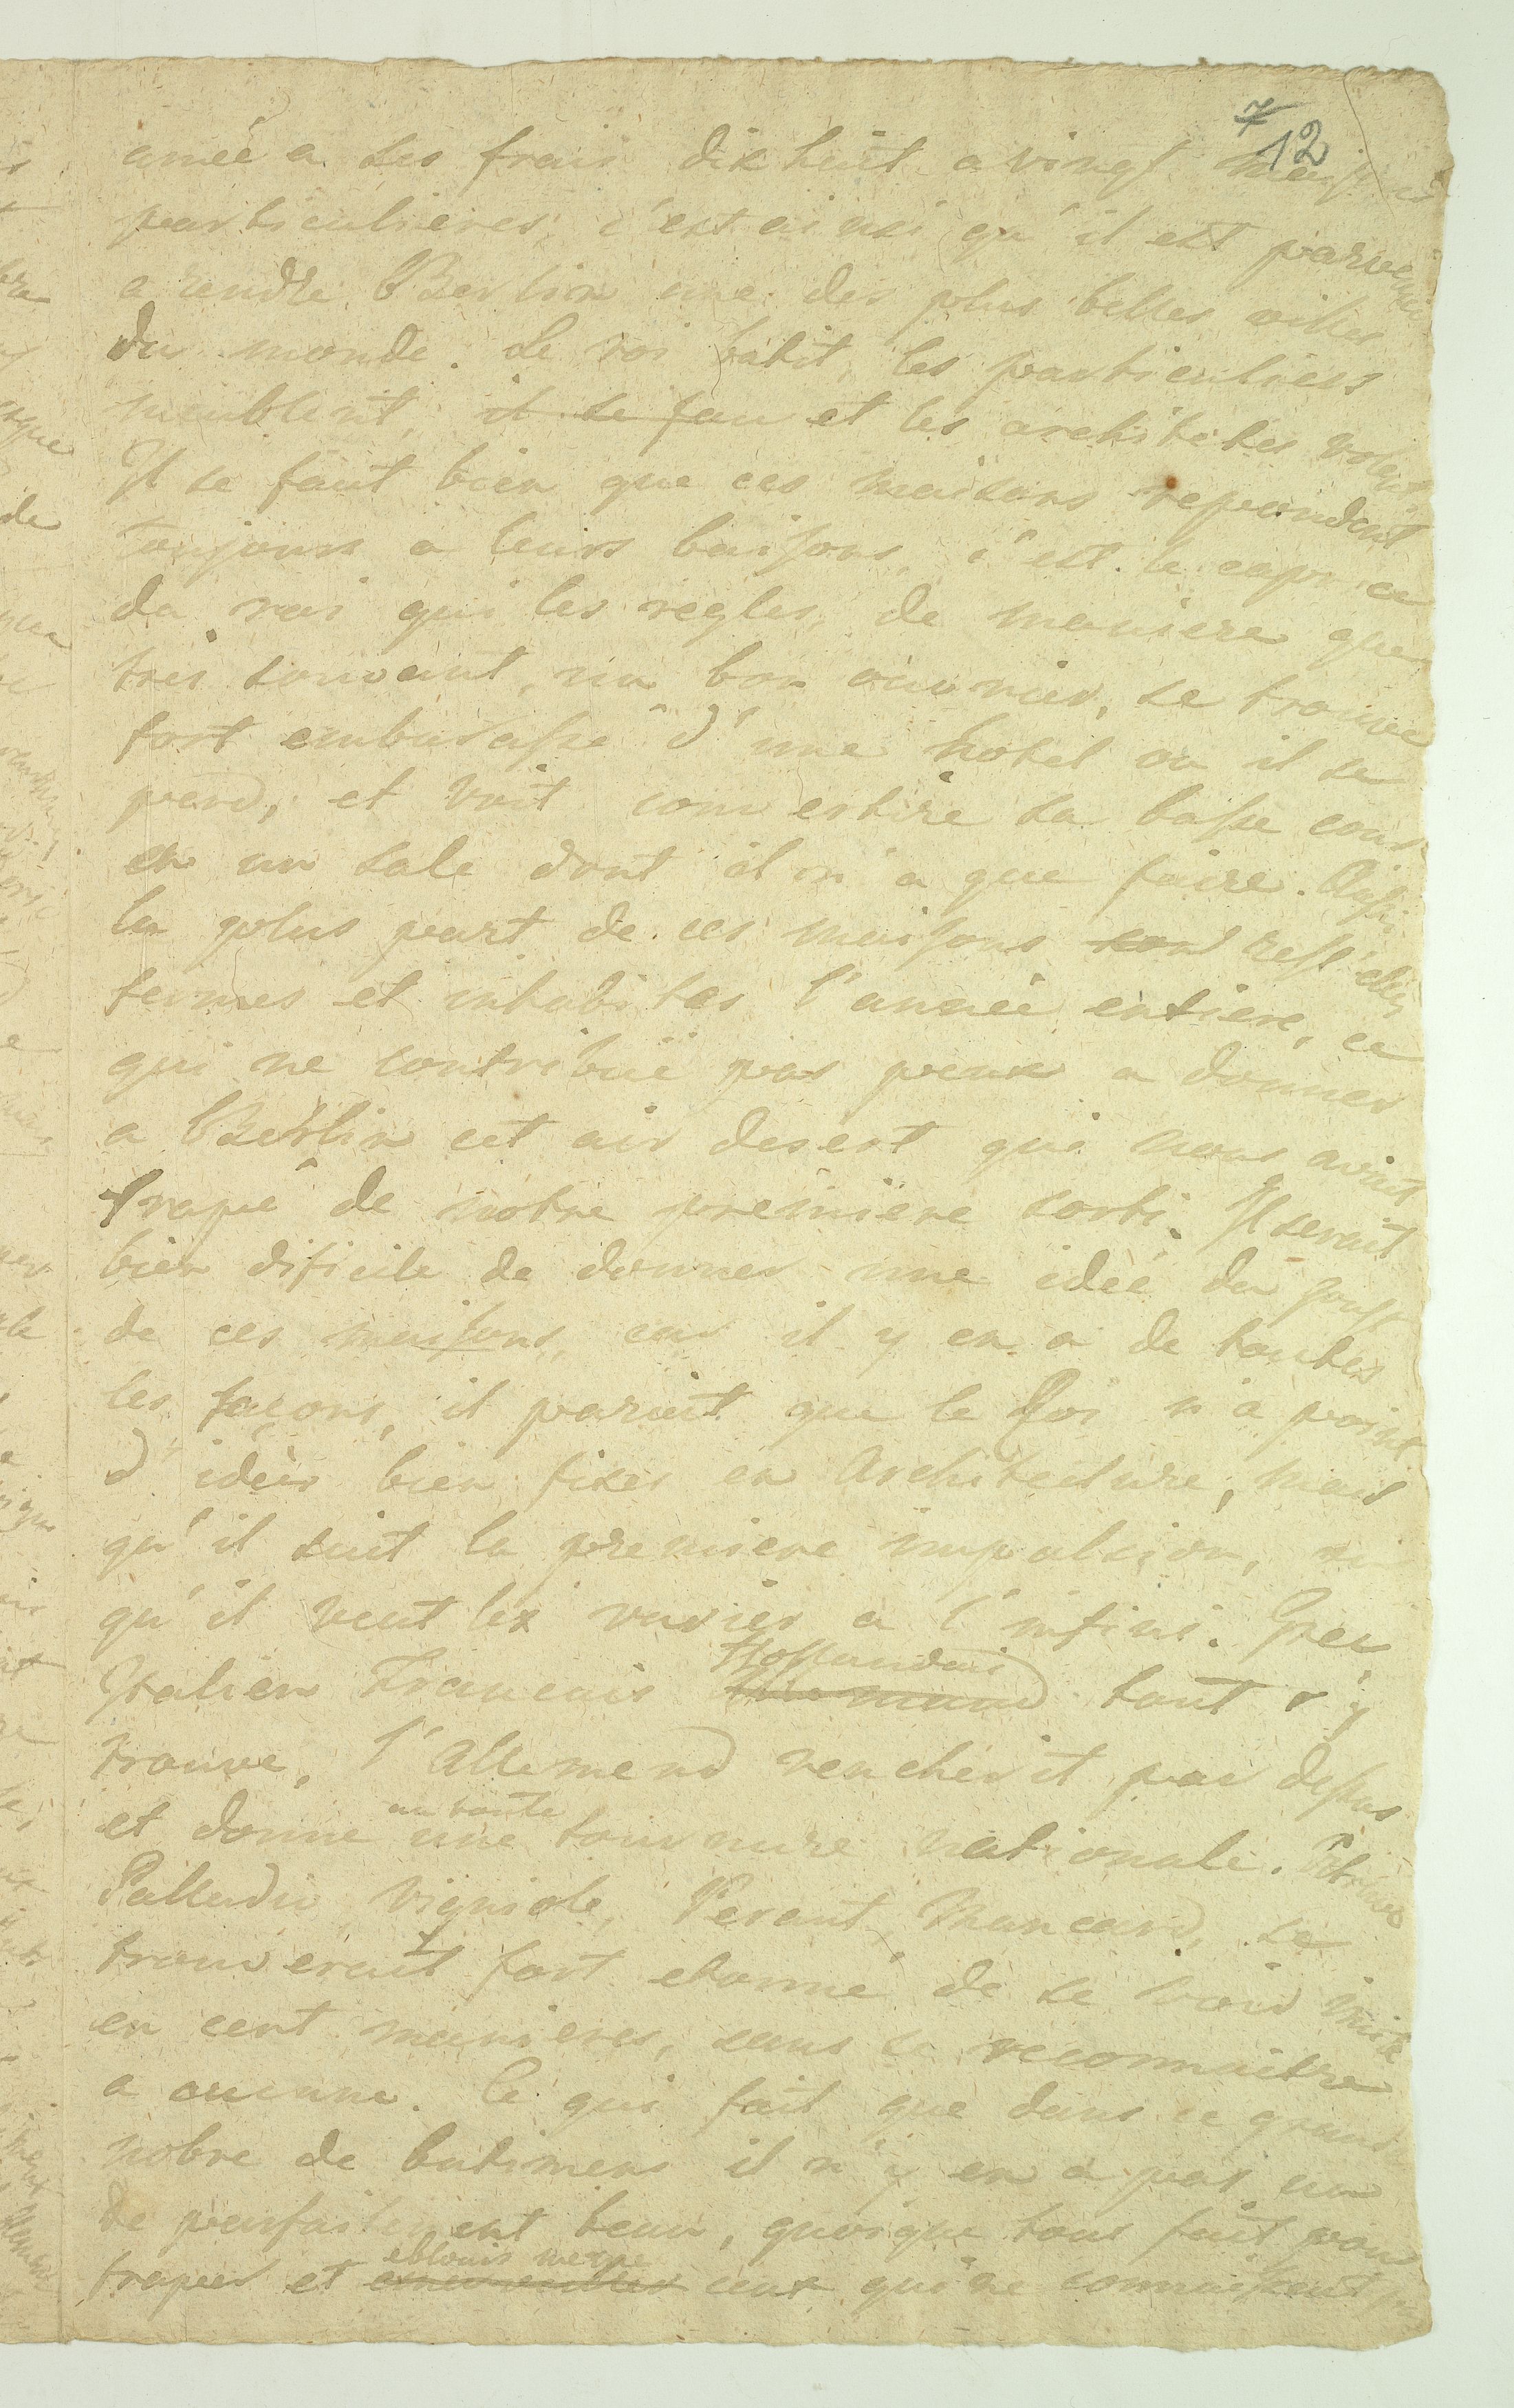 7 12
anneé a ses frais dix huit a vingt
particulieres, c'est ainsi qu'il est parvenu
a rendre Berlin une des plus belles villes
du monde. Le roi batit, les particuliers
meublent, il se fau et les architetes volent
Il se faut bien que ces maisons repondent
toujours a leurs baisons, c'est le caprice
du roi qui les regles, de maniere que
tres souvant, un bon ouvrier, se trouve
fort embarasse d'une hotel ou il se
perd, et voit convertire sa basse cour
en un sale dont il n'a que faire. Aussi
la plus part de ces maisons sont rest'elles
fermes et inhabites l'année entiere, ce
qui ne contribuë pas peux a donner
a Berlin cet air desert qui nous avait
frapé de notre première sorti. Il serait
bien dificile de donner une idée du goust
de ces maisons, car il y en a de toutes
les façons, il parait que le Roi n'a point
d'idèes bien fixes en Architecture, mais
qu'il suit la premiere impulsion, ou
qu'il veut les varier a l'infini. Grec
Hollandais
Italien Francais Allemand tout s'y
trouve, l'Allemend rencherit par dessus
au toute
et donne une tournure nationale. Vitruve
Palladio Vigniole, Perant, Mancard, se
trouverait fort etonné de se voir imité
en cent manieres, sans se reconnaitre
a aucune. Ce qui fait que dans ce grand
nobre de batimens il n'y en a pas un
de parfaitement beau, quoique tous fait pour
eblouir meme
fraper et ceux qui ne connaissent pas